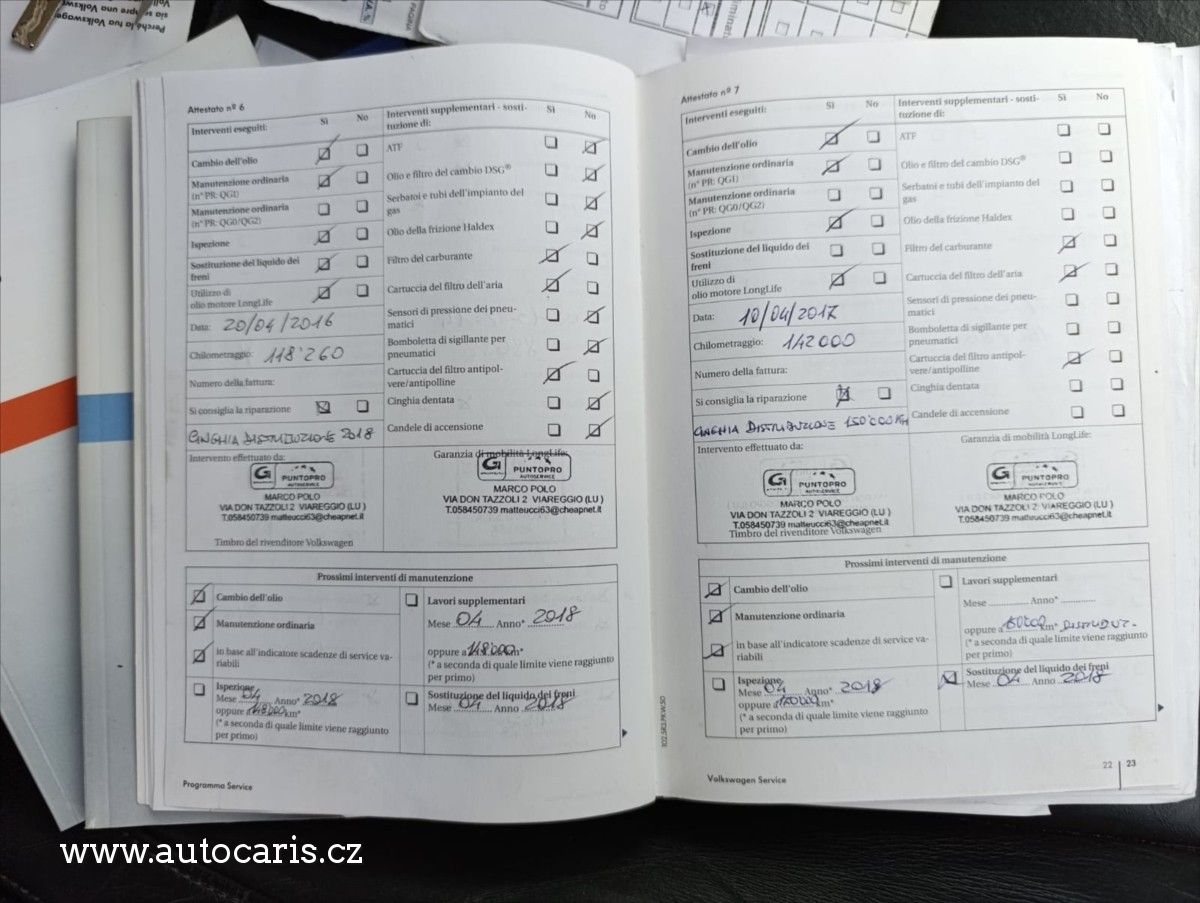 Perché la tua Volkswagen
sia sempre una Volkswagen
PAGINA
%
Attestato nº 6
Interventi eseguiti:
Sì
No
Interventi supplementari - sosti-
tuzione di:
Sì
No
Cambio dell'olio
ATF
Manutenzione ordinaria
(nº PR: QG1)
Olio e filtro del cambio DSG®
Manutenzione ordinaria
(nº PR: QG0/QG2)
Serbatoi e tubi dell'impianto del
gas
Ispezione
Olio della frizione Haldex
Sostituzione del liquido dei
freni
Filtro del carburante
Utilizzo di
olio motore LongLife
Cartuccia del filtro dell'aria
Data: 20/04/2016
Sensori di pressione dei pneu-
matici
Chilometraggio: 118'260
Bomboletta di sigillante per
pneumatici
Numero della fattura:
Cartuccia del filtro antipol-
vere/antipolline
Si consiglia la riparazione
Cinghia dentata
CINGHIA DISTRIBUZIONE 2018
Candele di accensione
Intervento effettuato da:
Garanzia di mobilità LongLife:
G
PUNTOPRO
AUTOSERVICE
MARCO POLO
VIA DON TAZZOLI 2 VIAREGGIO (LU )
T.058450739 matteucci63@cheapnet.it
G
PUNTOPRO
AUTOSERVICE
MARCO POLO
VIA DON TAZZOLI 2 VIAREGGIO (LU )
T.058450739 matteucci63@cheapnet.it
Timbro del rivenditore Volkswagen
Prossimi interventi di manutenzione
Cambio dell'olio
Manutenzione ordinaria
in base all'indicatore scadenze di service va-
riabili
Ispezione
Mese 04 Anno* 2018
oppure a 148000 km*
(* a seconda di quale limite viene raggiunto
per primo)
Lavori supplementari
Mese 04 Anno* 2018
oppure a 148000 km*
(* a seconda di quale limite viene raggiunto
per primo)
Sostituzione del liquido dei freni
Mese 04 Anno 2018
Programma Service
102.5R3.PKW.50
Attestato nº 7
Interventi eseguiti:
Sì
No
Interventi supplementari - sosti-
tuzione di:
Sì
No
Cambio dell'olio
ATF
Manutenzione ordinaria
(nº PR: QG1)
Olio e filtro del cambio DSG®
Manutenzione ordinaria
(nº PR: QG0/QG2)
Serbatoi e tubi dell'impianto del
gas
Ispezione
Olio della frizione Haldex
Sostituzione del liquido dei
freni
Filtro del carburante
Utilizzo di
olio motore LongLife
Cartuccia del filtro dell'aria
Data: 10/04/2017
Sensori di pressione dei pneu-
matici
Chilometraggio: 142000
Bomboletta di sigillante per
pneumatici
Numero della fattura:
Cartuccia del filtro antipol-
vere/antipolline
Si consiglia la riparazione
Cinghia dentata
CINGHIA DISTRIBUZIONE 150'000 KM
Candele di accensione
Intervento effettuato da:
Garanzia di mobilità LongLife:
G
PUNTOPRO
AUTOSERVICE
MARCO POLO
VIA DON TAZZOLI 2 VIAREGGIO (LU )
T.058450739 matteucci63@cheapnet.it
G
PUNTOPRO
AUTOSERVICE
MARCO POLO
VIA DON TAZZOLI 2 VIAREGGIO (LU )
T.058450739 matteucci63@cheapnet.it
Timbro del rivenditore Volkswagen
Prossimi interventi di manutenzione
Cambio dell'olio
Manutenzione ordinaria
in base all'indicatore scadenze di service va-
riabili
Ispezione
Mese 04 Anno* 2018
oppure a km*
(* a seconda di quale limite viene raggiunto
per primo)
Lavori supplementari
Mese ............ Anno* ............
oppure a 150000 km*
(* a seconda di quale limite viene raggiunto
per primo)
Sostituzione del liquido dei freni
Mese 04 Anno 2018
Volkswagen Service
22 | 23
www.autocaris.cz